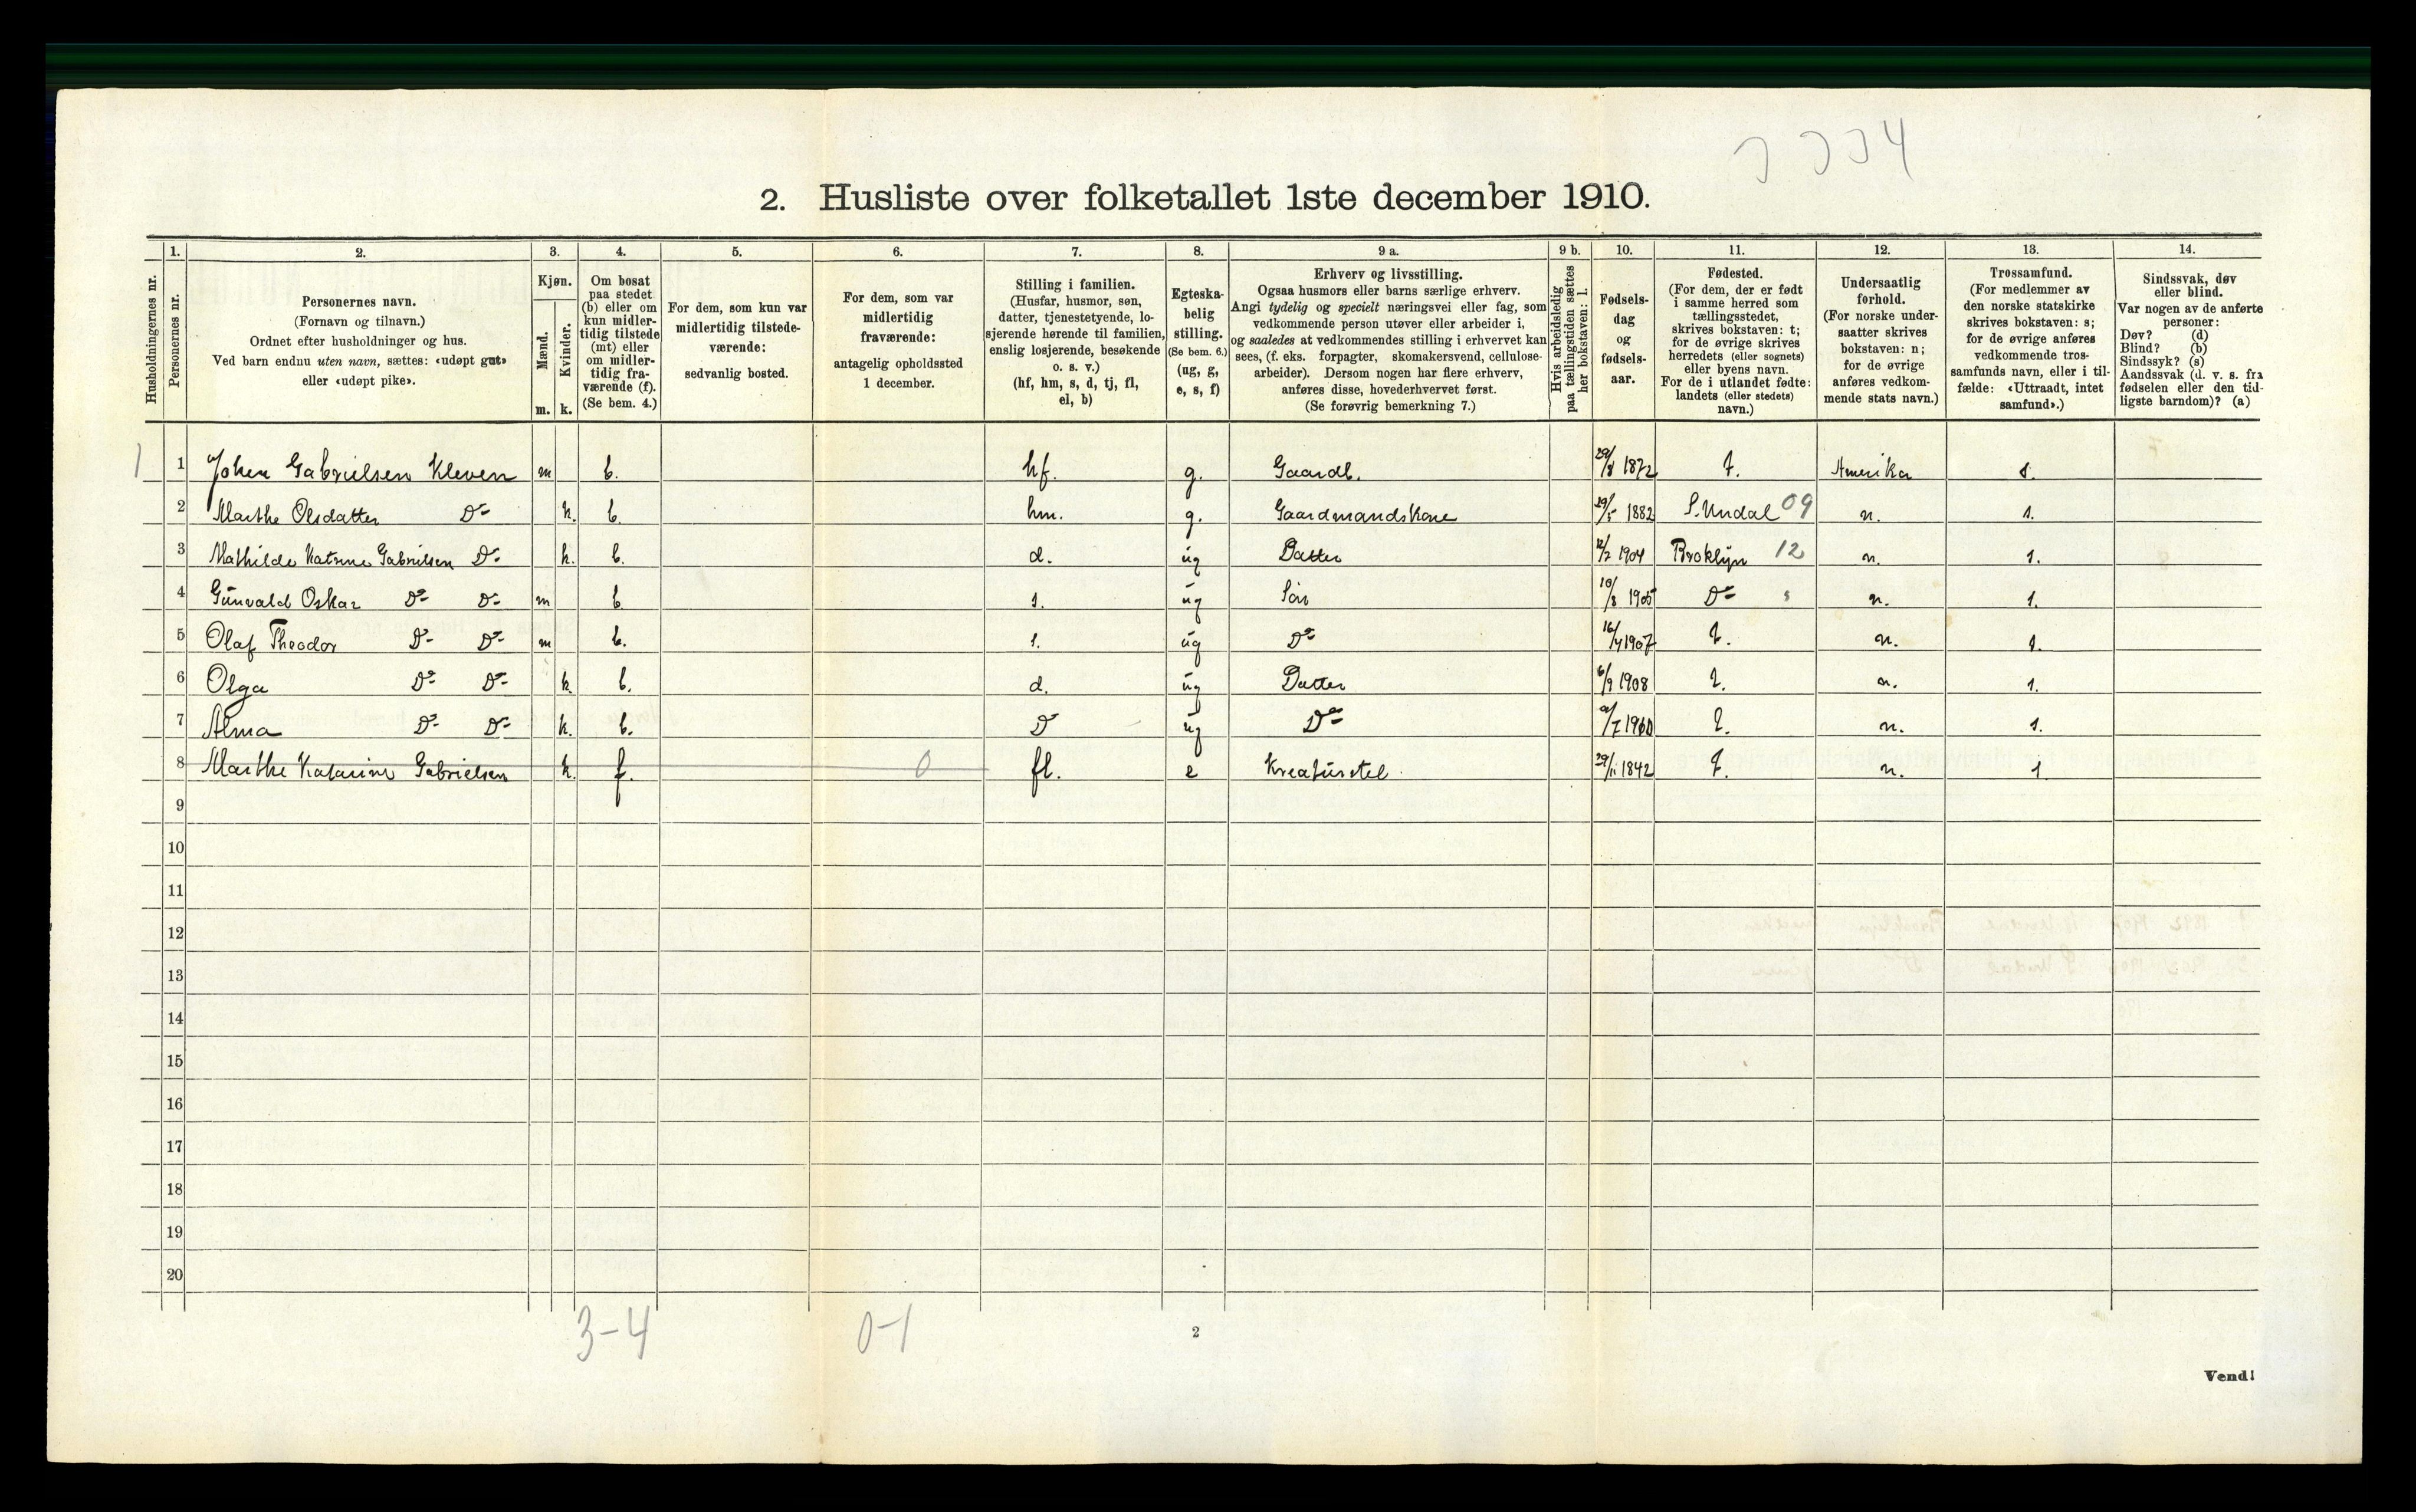 2. Husliste over folketallet 1ste december 1910.
Husholdningernes nr.
1. Personernes nr.
2. Personernes navn.
(Fornavn og tilnavn.)
Ordnet efter husholdninger og hus.
Ved barn endnu uten navn, sættes: «udøpt gut»
eller «udøpt pike».
3. Kjøn.
Mænd. m.
Kvinder. k.
4. Om bosat
paa stedet
(b) eller om
kun midler-
tidig tilstede
(mt) eller
om midler-
tidig fra-
værende (f).
(Se bem. 4.)
5. For dem, som kun var
midlertidig tilstede-
værende:
sedvanlig bosted.
6. For dem, som var
midlertidig
fraværende:
antagelig opholdssted
1 december.
7. Stilling i familien.
(Husfar, husmor, søn,
datter, tjenestetyende, lo-
sjerende hørende til familien,
enslig losjerende, besøkende
o. s. v.)
(hf, hm, s, d, tj, fl,
el, b)
8. Egteska-
belig
stilling.
(Se bem. 6.)
(ug, g,
e, s, f)
9 a. Erhverv og livsstilling.
Ogsaa husmors eller barns særlige erhverv.
Angi tydelig og specielt næringsvei eller fag, som
vedkommende person utøver eller arbeider i,
og saaledes at vedkommendes stilling i erhvervet kan
sees, (f. eks. forpagter, skomakersvend, cellulose-
arbeider). Dersom nogen har flere erhverv,
anføres disse, hovederhvervet først.
(Se forøvrig bemerkning 7.)
9 b. Hvis arbeidsledig
paa tællingstiden sættes
her bokstaven: l.
10. Fødsels-
dag
og
fødsels-
aar.
11. Fødested.
(For dem, der er født
i samme herred som
tællingsstedet,
skrives bokstaven: t;
for de øvrige skrives
herredets (eller sognets)
eller byens navn.
For de i utlandet fødte:
landets (eller stedets)
navn.)
12. Undersaatlig
forhold.
(For norske under-
saatter skrives
bokstaven: n;
for de øvrige
anføres vedkom-
mende stats navn.)
13. Trossamfund.
(For medlemmer av
den norske statskirke
skrives bokstaven: s;
for de øvrige anføres
vedkommende tros-
samfunds navn, eller i til-
fælde: «Uttraadt, intet
samfund».)
14. Sindssvak, døv
eller blind.
Var nogen av de anførte
personer:
Døv? (d)
Blind? (b)
Sindssyk? (s)
Aandssvak (d. v. s. fra
fødselen eller den tid-
ligste barndom)? (a)
1 1 Johan Gabrielsen Kleven m b. hf. g. Gaardb. 29/8 1872 t. Amerika s.
2 Marthe Olsdatter Do k. b. hm. g. Gaardmandskone 29/5 1882 S. Undal 09 n. s.
3 Mathilde Katrine Gabrielsen Do k. b. d. ug Datter 12/2 1904 Broklyn 12 n. s.
4 Gunvald Oskar Do Do m b s. ug Søn 10/8 1905 Do n. s.
5 Olaf Theodor Do Do m b. s. ug Do 16/4 1907 t. n. s.
6 Olga Do Do k. b. d. ug Datter 6/9 1908 t. n. s.
7 Alma Do Do k. b. D ug Do t. n. s.
8 Marthe Katarine Gabrielsen k. f. 0 fl. e Kreaturstel 29/11 1842 t. n. s
9
10
11
12
13
14
15
16
17
18
19
20
3-4 0-1
2
Vend!